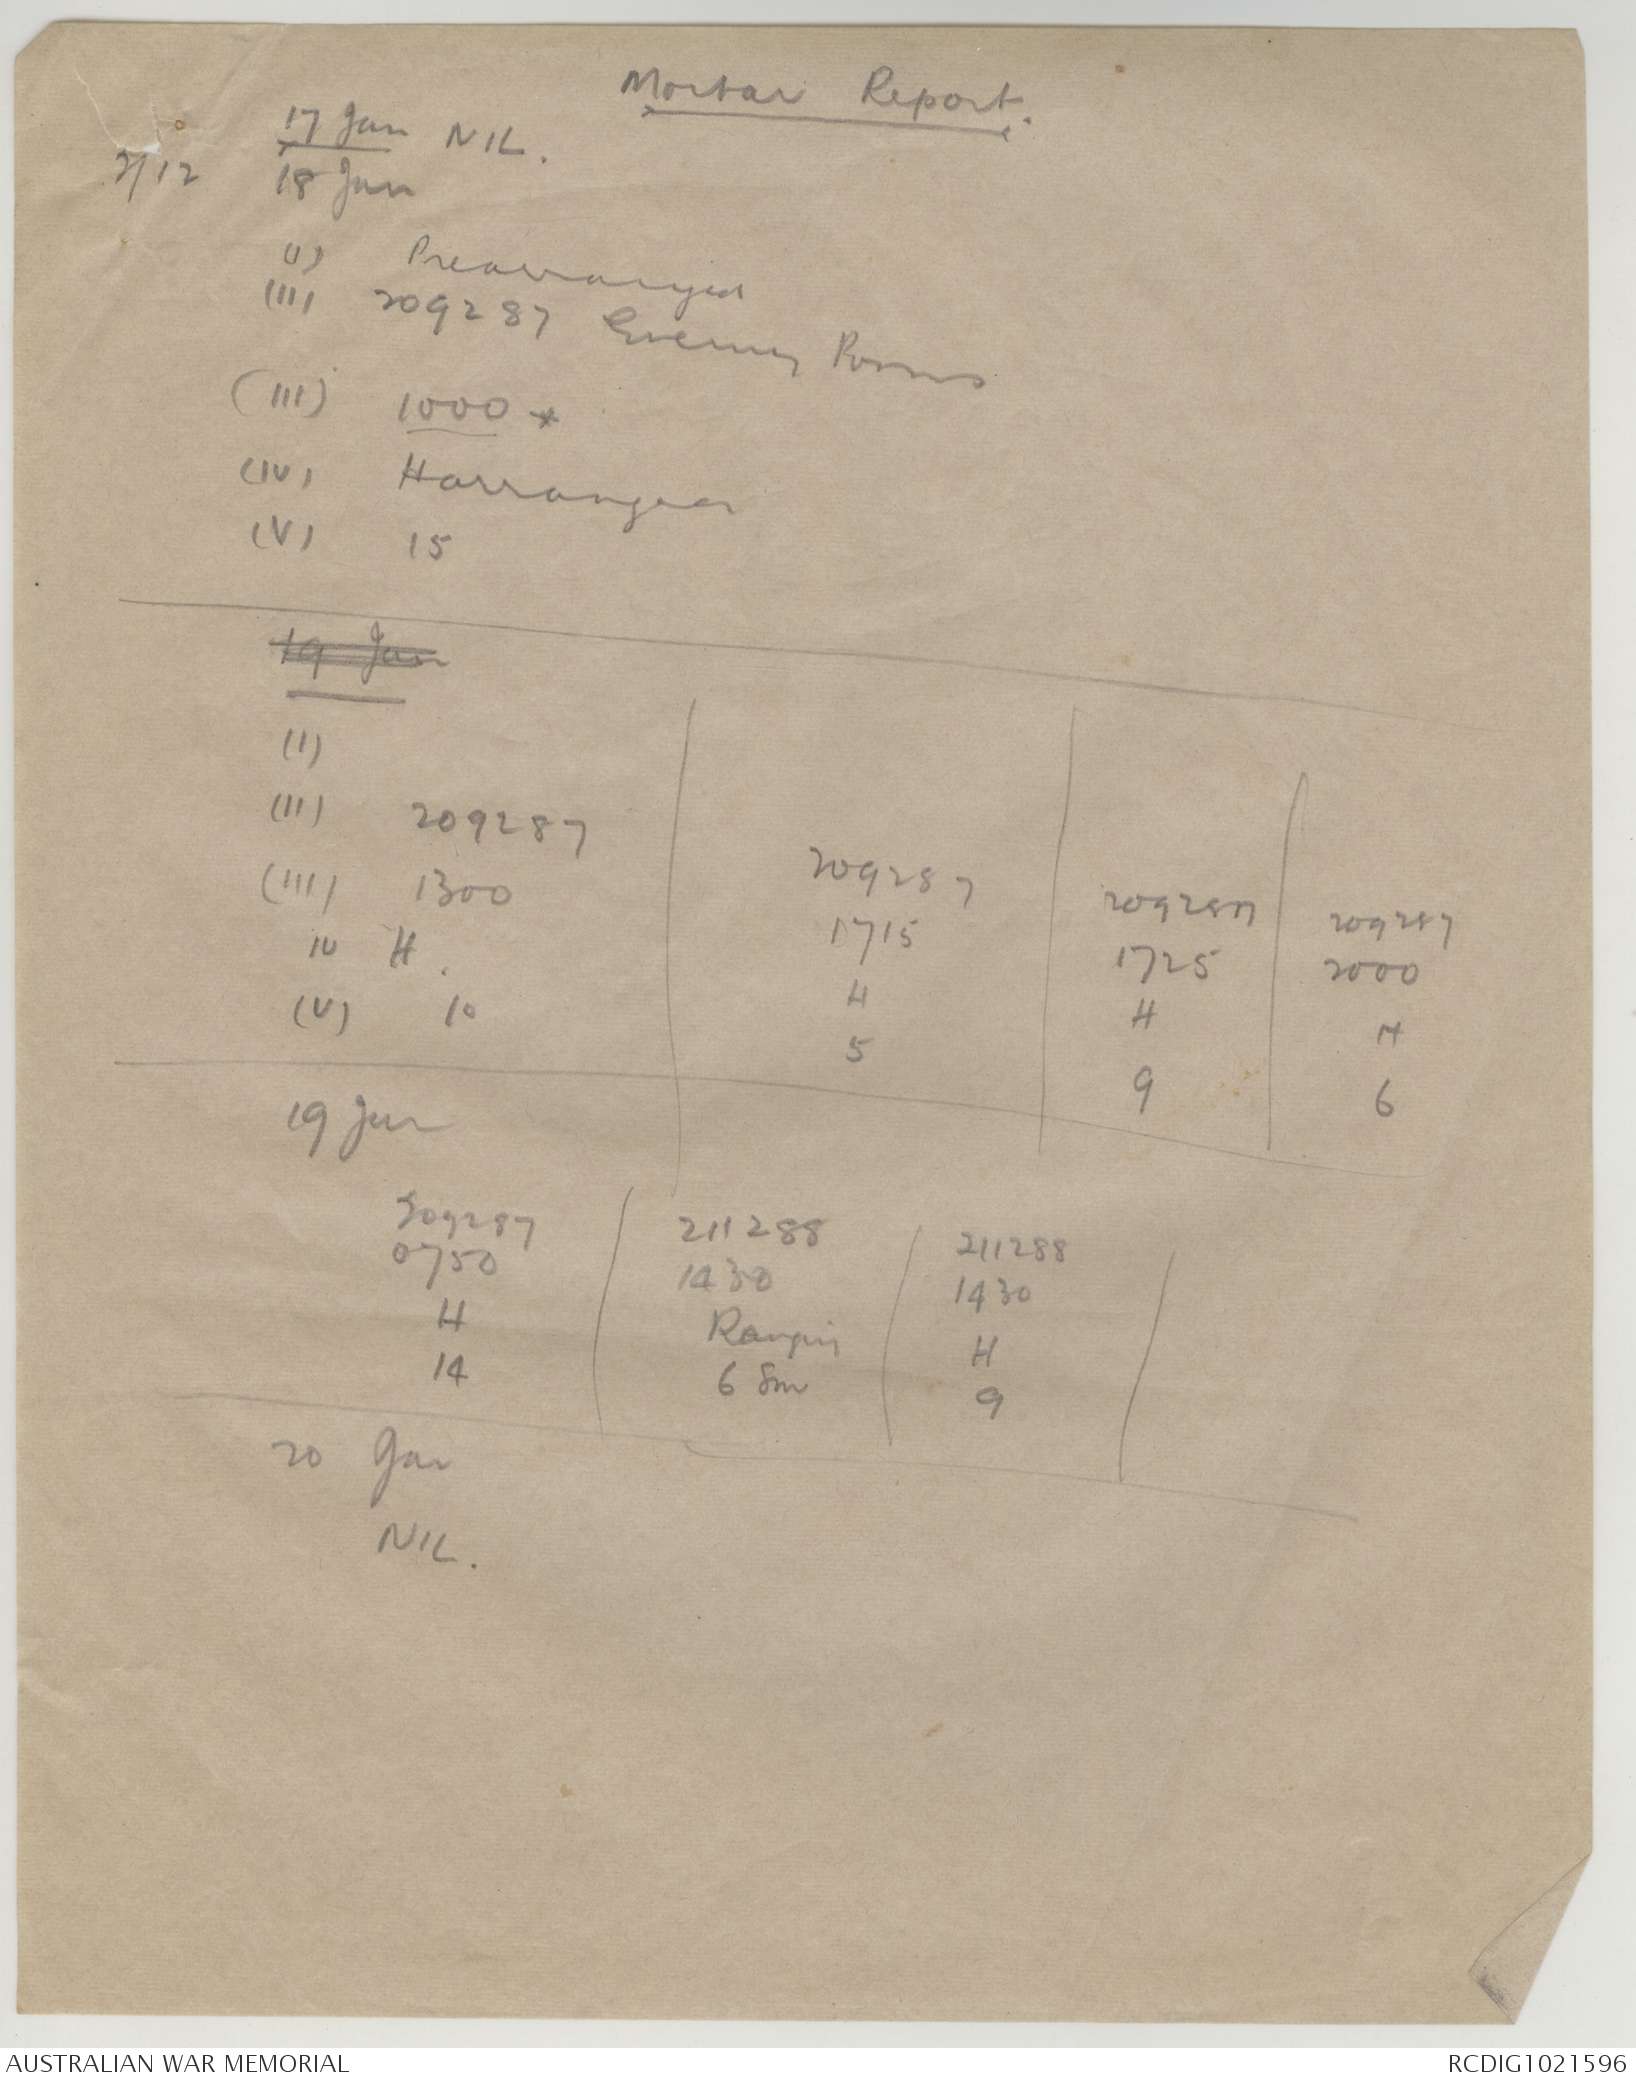 Mortar Report.
17 Jan NIL.
2/12 18 Jan
(I) Prearranged
(II) 209287 Enemy Posns
(III) 1000 *
(IV) Harrangeer
(V) 15
19 Jan
(I)
(II) 209287 209287 209287 209287
(III) 1300 1715 1725 2000
IV H. H H H
(V) 10 5 9 6
19 Jan
209287 211288 211288
0750 1430 1430
H Ranging H
14 6 Sm 9
20 Jan
NIL.
AUSTRALIAN WAR MEMORIAL RCDIG1021596